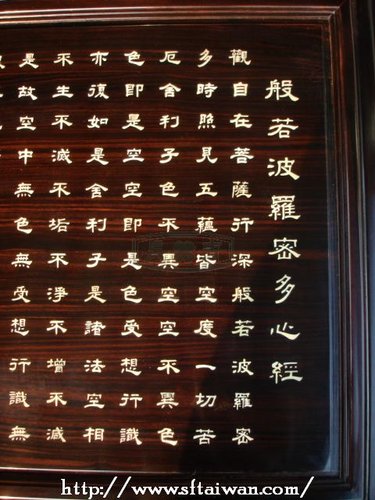 般若波羅密多心經
觀自在菩薩行深般若波羅密
多時照見五蘊皆空度一切苦
厄舍利子色不異空空不異色
色即是空空即是色受想行識
亦復如是舍利子是諸法空相
不生不滅不垢不淨不增不減
是故空中無色無受想行識無
http://www.sftaiwan.com/